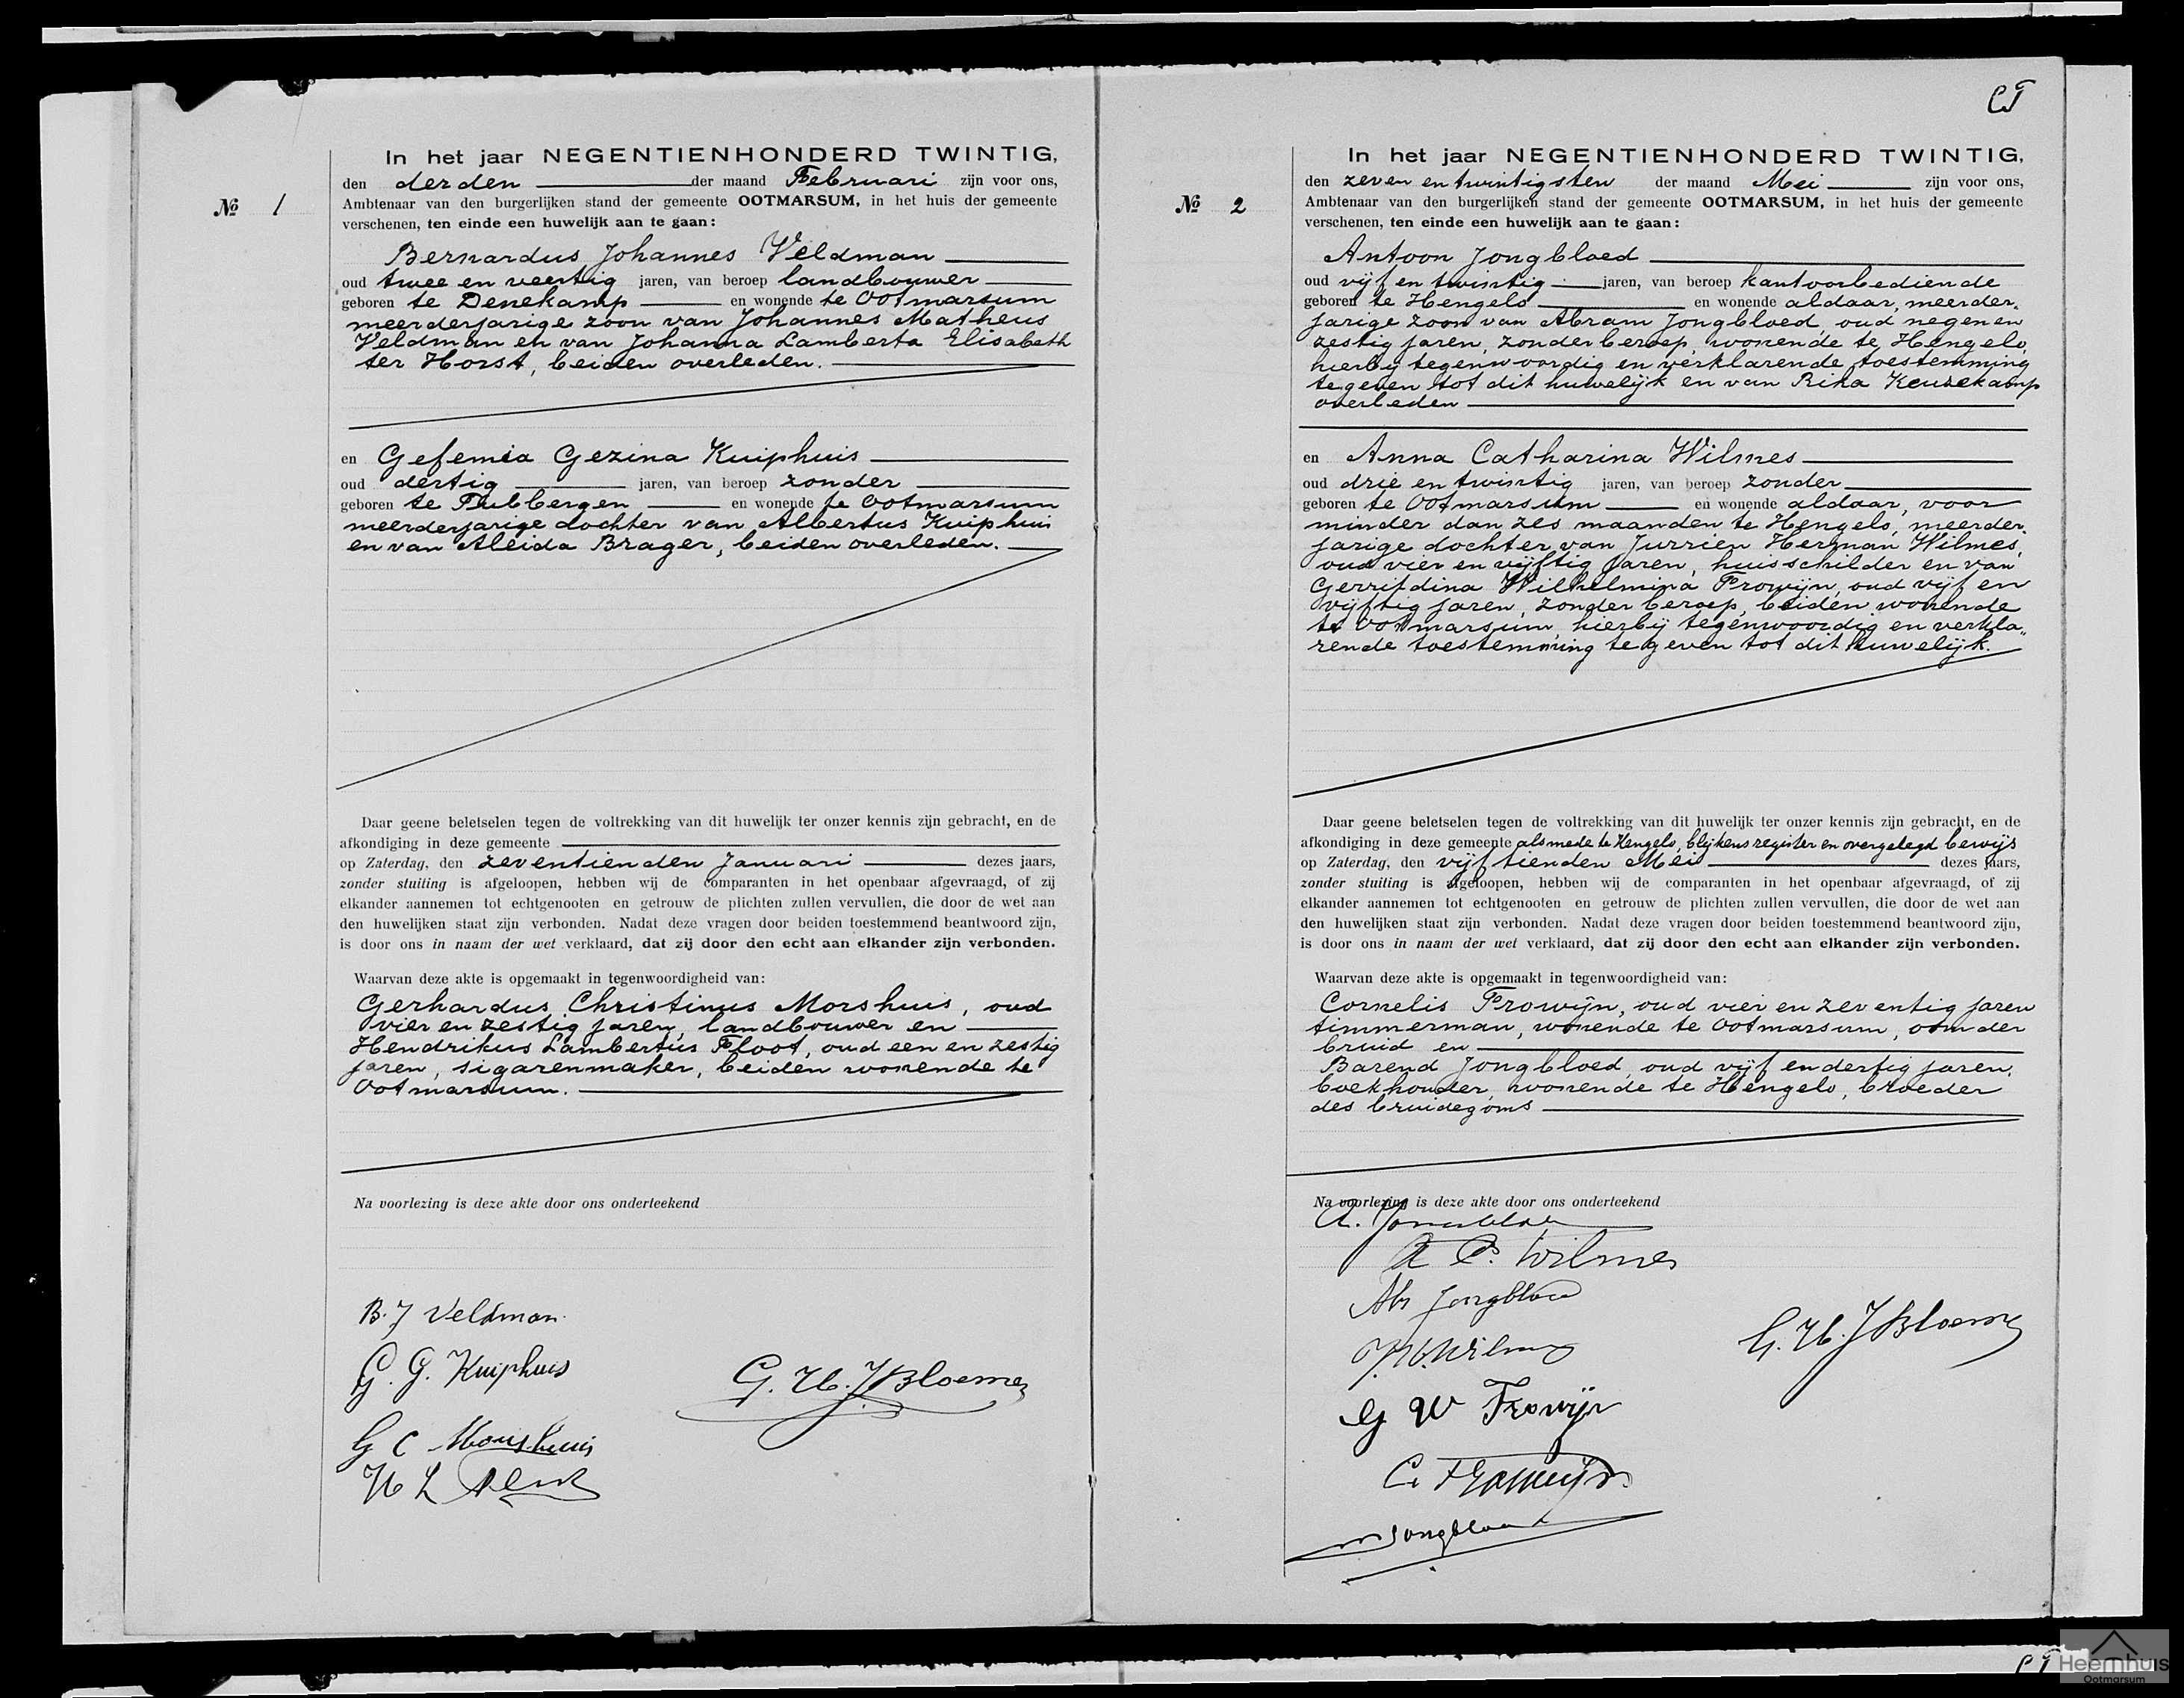 In het jaar NEGENTIENHONDERD TWINTIG,
den derden der maand Februari zijn voor ons,
Ambtenaar van den burgerlijken stand der gemeente OOTMARSUM, in het huis der gemeente
verschenen, ten einde een huwelijk aan te gaan:
No 1
Bernardus Johannes Veldman
oud twee en veertig jaren, van beroep landbouwer
geboren te Denekamp en wonende te Ootmarsum
meerderjarige zoon van Johannes Matheus
Veldman en van Johanna Lamberta Elisabeth
ter Horst, beiden overleden.
en Gefemia Gezina Kuiphuis
oud dertig jaren, van beroep zonder
geboren te Tubbergen en wonende te Ootmarsum
meerderjarige dochter van Albertus Kuiphuis
en van Aleida Brager, beiden overleden.
Daar geene beletselen tegen de voltrekking van dit huwelijk ter onzer kennis zijn gebracht, en de
afkondiging in deze gemeente
op Zaterdag, den zeventienden Januari dezes jaars,
zonder stuiting is afgeloopen, hebben wij de comparanten in het openbaar afgevraagd, of zij
elkander aannemen tot echtgenooten en getrouw de plichten zullen vervullen, die door de wet aan
den huwelijken staat zijn verbonden. Nadat deze vragen door beiden toestemmend beantwoord zijn,
is door ons in naam der wet verklaard, dat zij door den echt aan elkander zijn verbonden.
Waarvan deze akte is opgemaakt in tegenwoordigheid van:
Gerhardus Christinus Morshuis, oud
vier en zestig jaren, landbouwer en
Hendrikus Lambertus Floot, oud een en zestig
jaren, sigarenmaker, beiden wonende te
Ootmarsum.
Na voorlezing is deze akte door ons onderteekend
B. J Veldman.
G. G. Kuiphuis
G. H. J Bloemen
G C Morshuis
H L
CT
In het jaar NEGENTIENHONDERD TWINTIG,
den zeven en twintigsten der maand Mei zijn voor ons,
Ambtenaar van den burgerlijken stand der gemeente OOTMARSUM, in het huis der gemeente
verschenen, ten einde een huwelijk aan te gaan:
No 2
Antoon Jongbloed
oud vijf en twintig jaren, van beroep kantoorbediende
geboren te Hengelo en wonende aldaar, meerder„
jarige zoon van Abram Jongbloed, oud negen en
zestig jaren, zonder beroep, wonende te Hengelo,
hierbij tegenwoordig en verklarende toestemming
te geven tot dit huwelijk en van Rika Keuzekamp
overleden
en Anna Catharina Wilmes
oud drie en twintig jaren, van beroep zonder
geboren te Ootmarsum en wonende aldaar, voor
minder dan zes maanden te Hengelo, meerder„
jarige dochter van Jurrien Herman Wilmes,
oud vier en vijftig jaren, huisschilder en van
Gerritdina Wilhelmina Frowijn, oud vijf en
vijftig jaren, zonder beroep, beiden wonende
te Ootmarsum, hierbij tegenwoordig en verkla„
rende toestemming te geven tot dit huwelijk.
Daar geene beletselen tegen de voltrekking van dit huwelijk ter onzer kennis zijn gebracht, en de
afkondiging in deze gemeente alsmede te Hengelo, blijkens register en overgelegd bewijs
op Zaterdag, den vijftienden Mei dezes jaars,
zonder stuiting is afgeloopen, hebben wij de comparanten in het openbaar afgevraagd, of zij
elkander aannemen tot echtgenooten en getrouw de plichten zullen vervullen, die door de wet aan
den huwelijken staat zijn verbonden. Nadat deze vragen door beiden toestemmend beantwoord zijn,
is door ons in naam der wet verklaard, dat zij door den echt aan elkander zijn verbonden.
Waarvan deze akte is opgemaakt in tegenwoordigheid van:
Cornelis Frowijn, oud vier en zeventig jaren
timmerman, wonende te Ootmarsum, oom der
bruid en
Barend Jongbloed, oud vijf en dertig jaren,
boekhouder, wonende te Hengelo, broeder
des bruidegoms
Na voorlezing is deze akte door ons onderteekend
A. Jongbloed
A C. Wilmes
Abr Jongbloed
J. H. Wilmes
G. H. J Bloemen
G W Frowijn
C. Frowijn
Jongbloed
Heemhuis
Ootmarsum